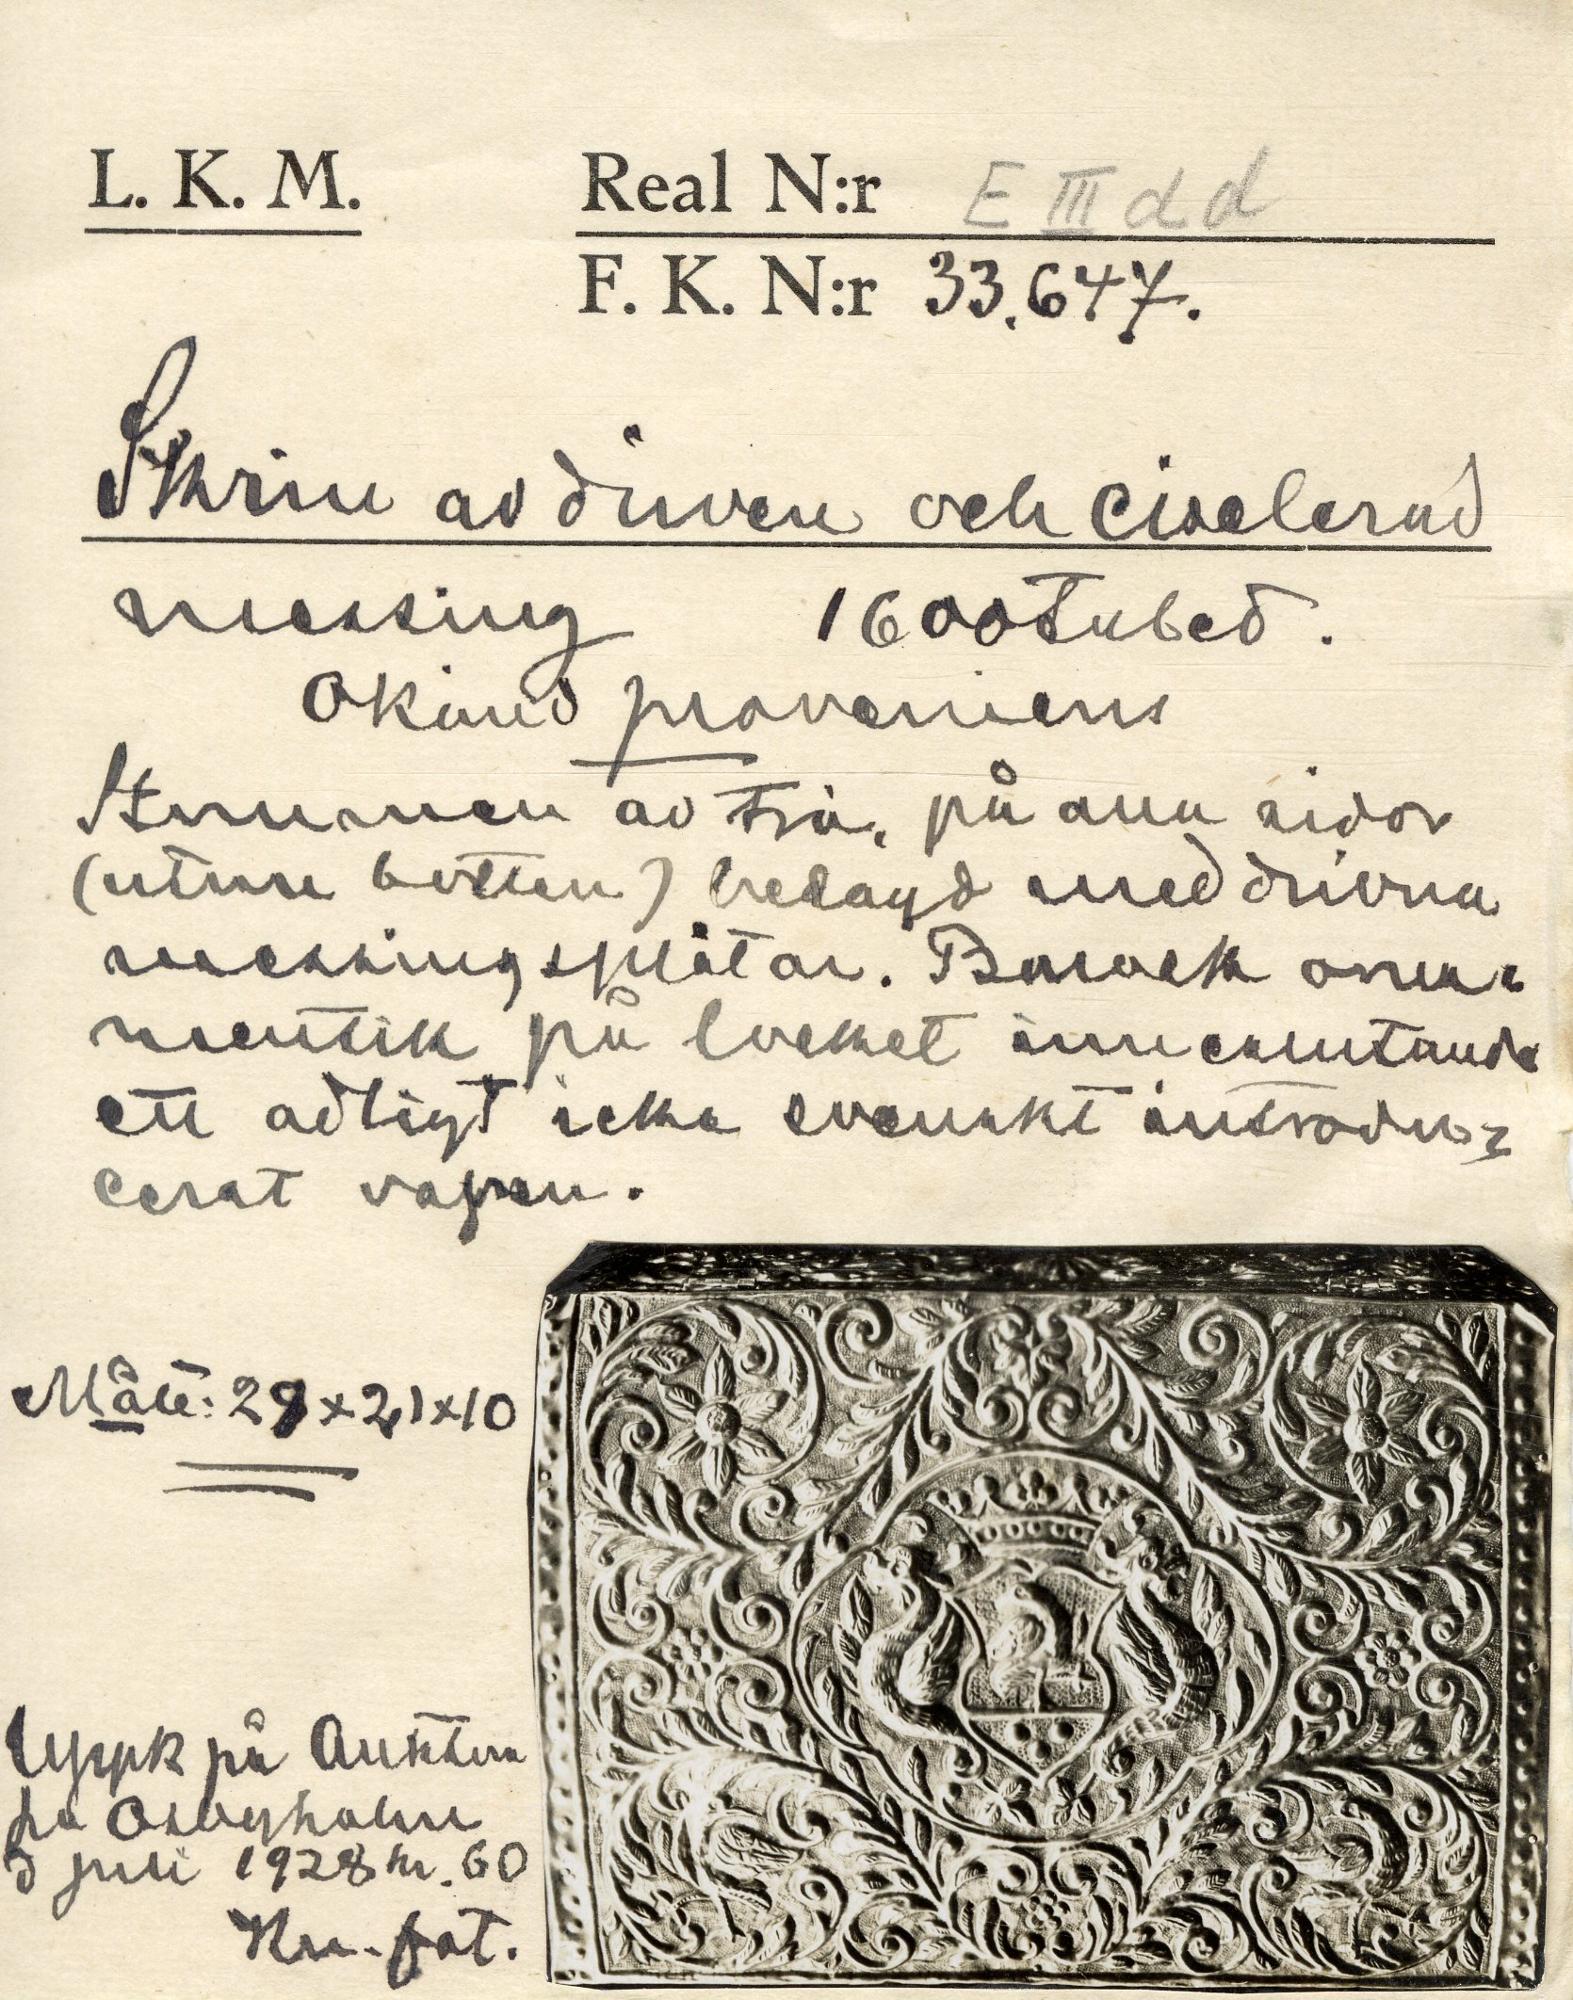 L. K. M.
Real N:r E III d d
F. K. N:r 33.647.
Skrin av driven och ciselerad
messing 1600talet.
Okänd proveniens
Stommen av trä, på alla sidor
(utom botten) belagd med drivna
messingsplåtar. Barock orna-
mentik på locket inneslutande
ett adligt icke svenskt introdu-
cerat vapen.
Mått: 29x21x10
Uppk på Auktion
på Osbyholm
5 juli 1928 kr. 60
fot.